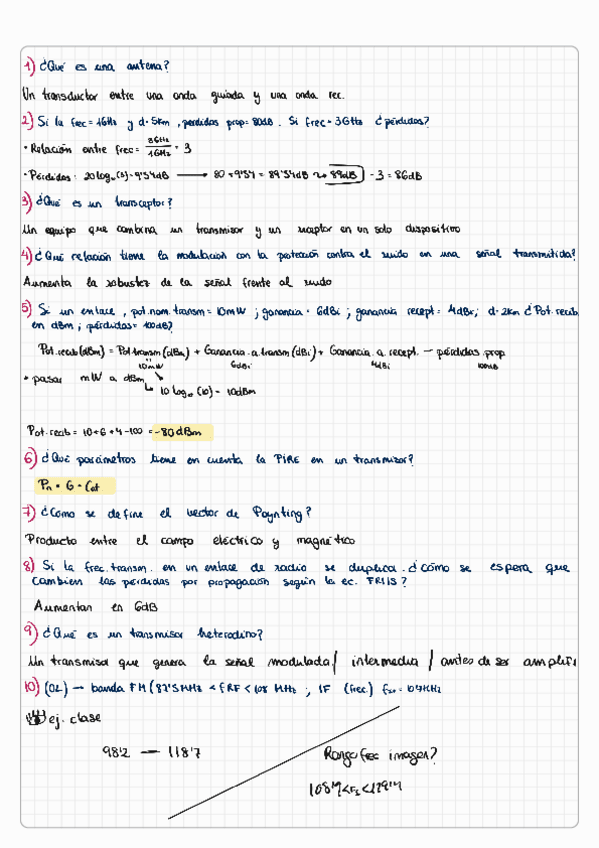 1) ¿Qué es una antena?
Un transductor entre una onda guiada y una onda rec.
2) Si la frec = 1GHz y d = 5km, perdidas prop = 80dB. Si frec = 3GHz ¿pérdidas?
• Relación entre frec = 3GHz / 1GHz = 3
• Pérdidas: 20log₁₀(3) = 9'54dB → 80 + 9'54 = 89'54dB ~ 89dB - 3 = 86dB
3) ¿Qué es un transceptor?
Un equipo que combina un transmisor y un receptor en un solo dispositivo
4) ¿Qué relación tiene la modulación con la protección contra el ruido en una señal transmitida?
Aumenta la robustez de la señal frente al ruido
5) Si un enlace, pot.nom.transm = 10mW; ganancia = 6dBi; ganancia recept = 4dBi; d = 2km ¿Pot.recib
en dBm; pérdidas = 100dB?
Pot.recib(dBm) = Pot.transm(dBm) + Ganancia.a.transm(dBi) + Ganancia.a.recept. - pérdidas prop
10mW 6dBi 4dBi
• pasar mW a dBm
10 log₁₀(10) = 10dBm
Pot.recib = 10+6+4-100 = -80dBm
6) ¿Qué parámetros tiene en cuenta la PIRE en un transmisor?
7) ¿Cómo se define el vector de Poynting?
Producto entre el campo eléctrico y magnético
8) Si la frec.transm. en un enlace de radio se duplica. ¿Cómo se espera que
cambien las perdidas por propagación según la ec. FRIIS?
Aumentan en 6dB
9) ¿Qué es un transmisor heterodino?
Un transmisor que genera la señal modulada / intermedia / antes de ser amplifi
10) (OL) → banda FM (87'5MHz < fRF < 108 MHz; IF (frec)
ej. clase
98'2 — 118'7
Rango frec imagen?